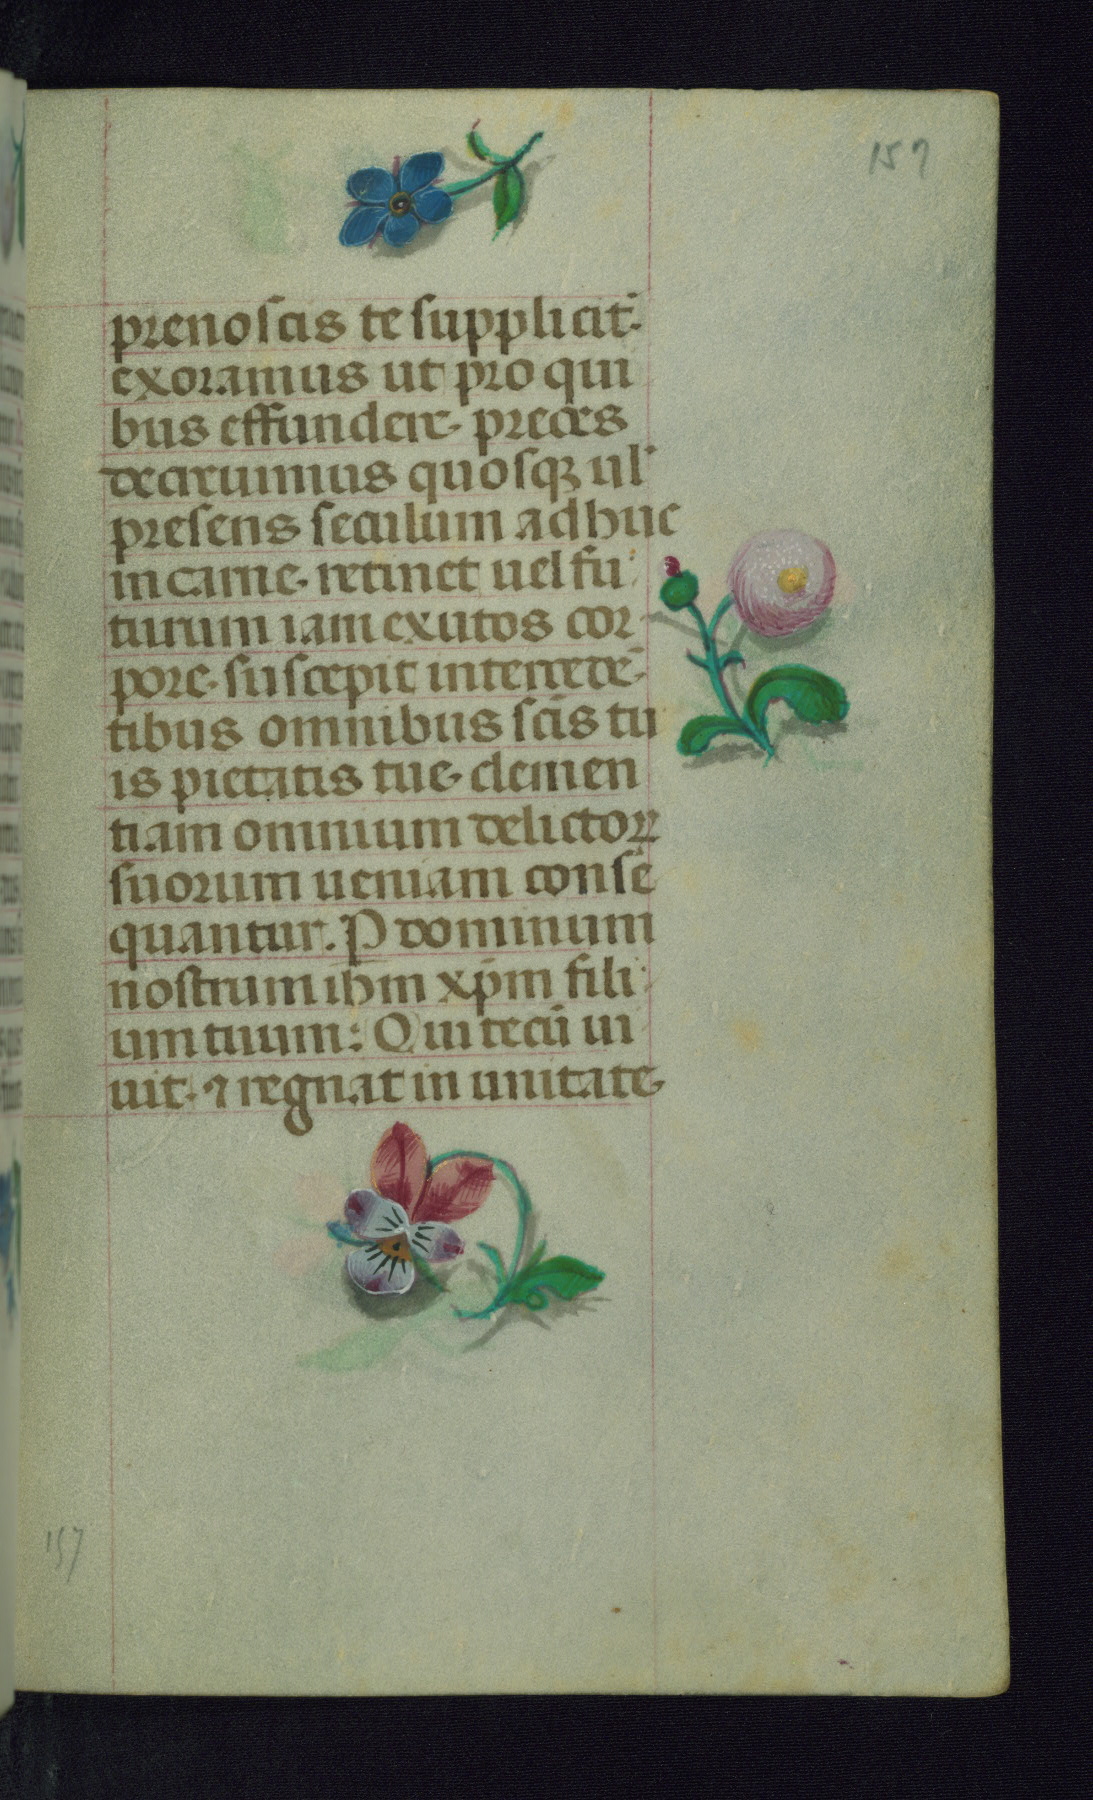 157
prenoscis te supplicit̄
exoramus ut pro qui
bus effundere preces
decreuimus quosqꝫ ul'
presens seculum adhuc
in carne retinet uel fu
turum iam exutos cor
pore suscepit intercedē
tibus omnibus scīs tu
is pietatis tue clemen
tiam omnium delictoꝝ
suorum ueniam conse
quantur. P dominum
nostrum ihm xp̄m fili
um tuum: Qui tecū ui
uit ⁊ regnat in unitate
157